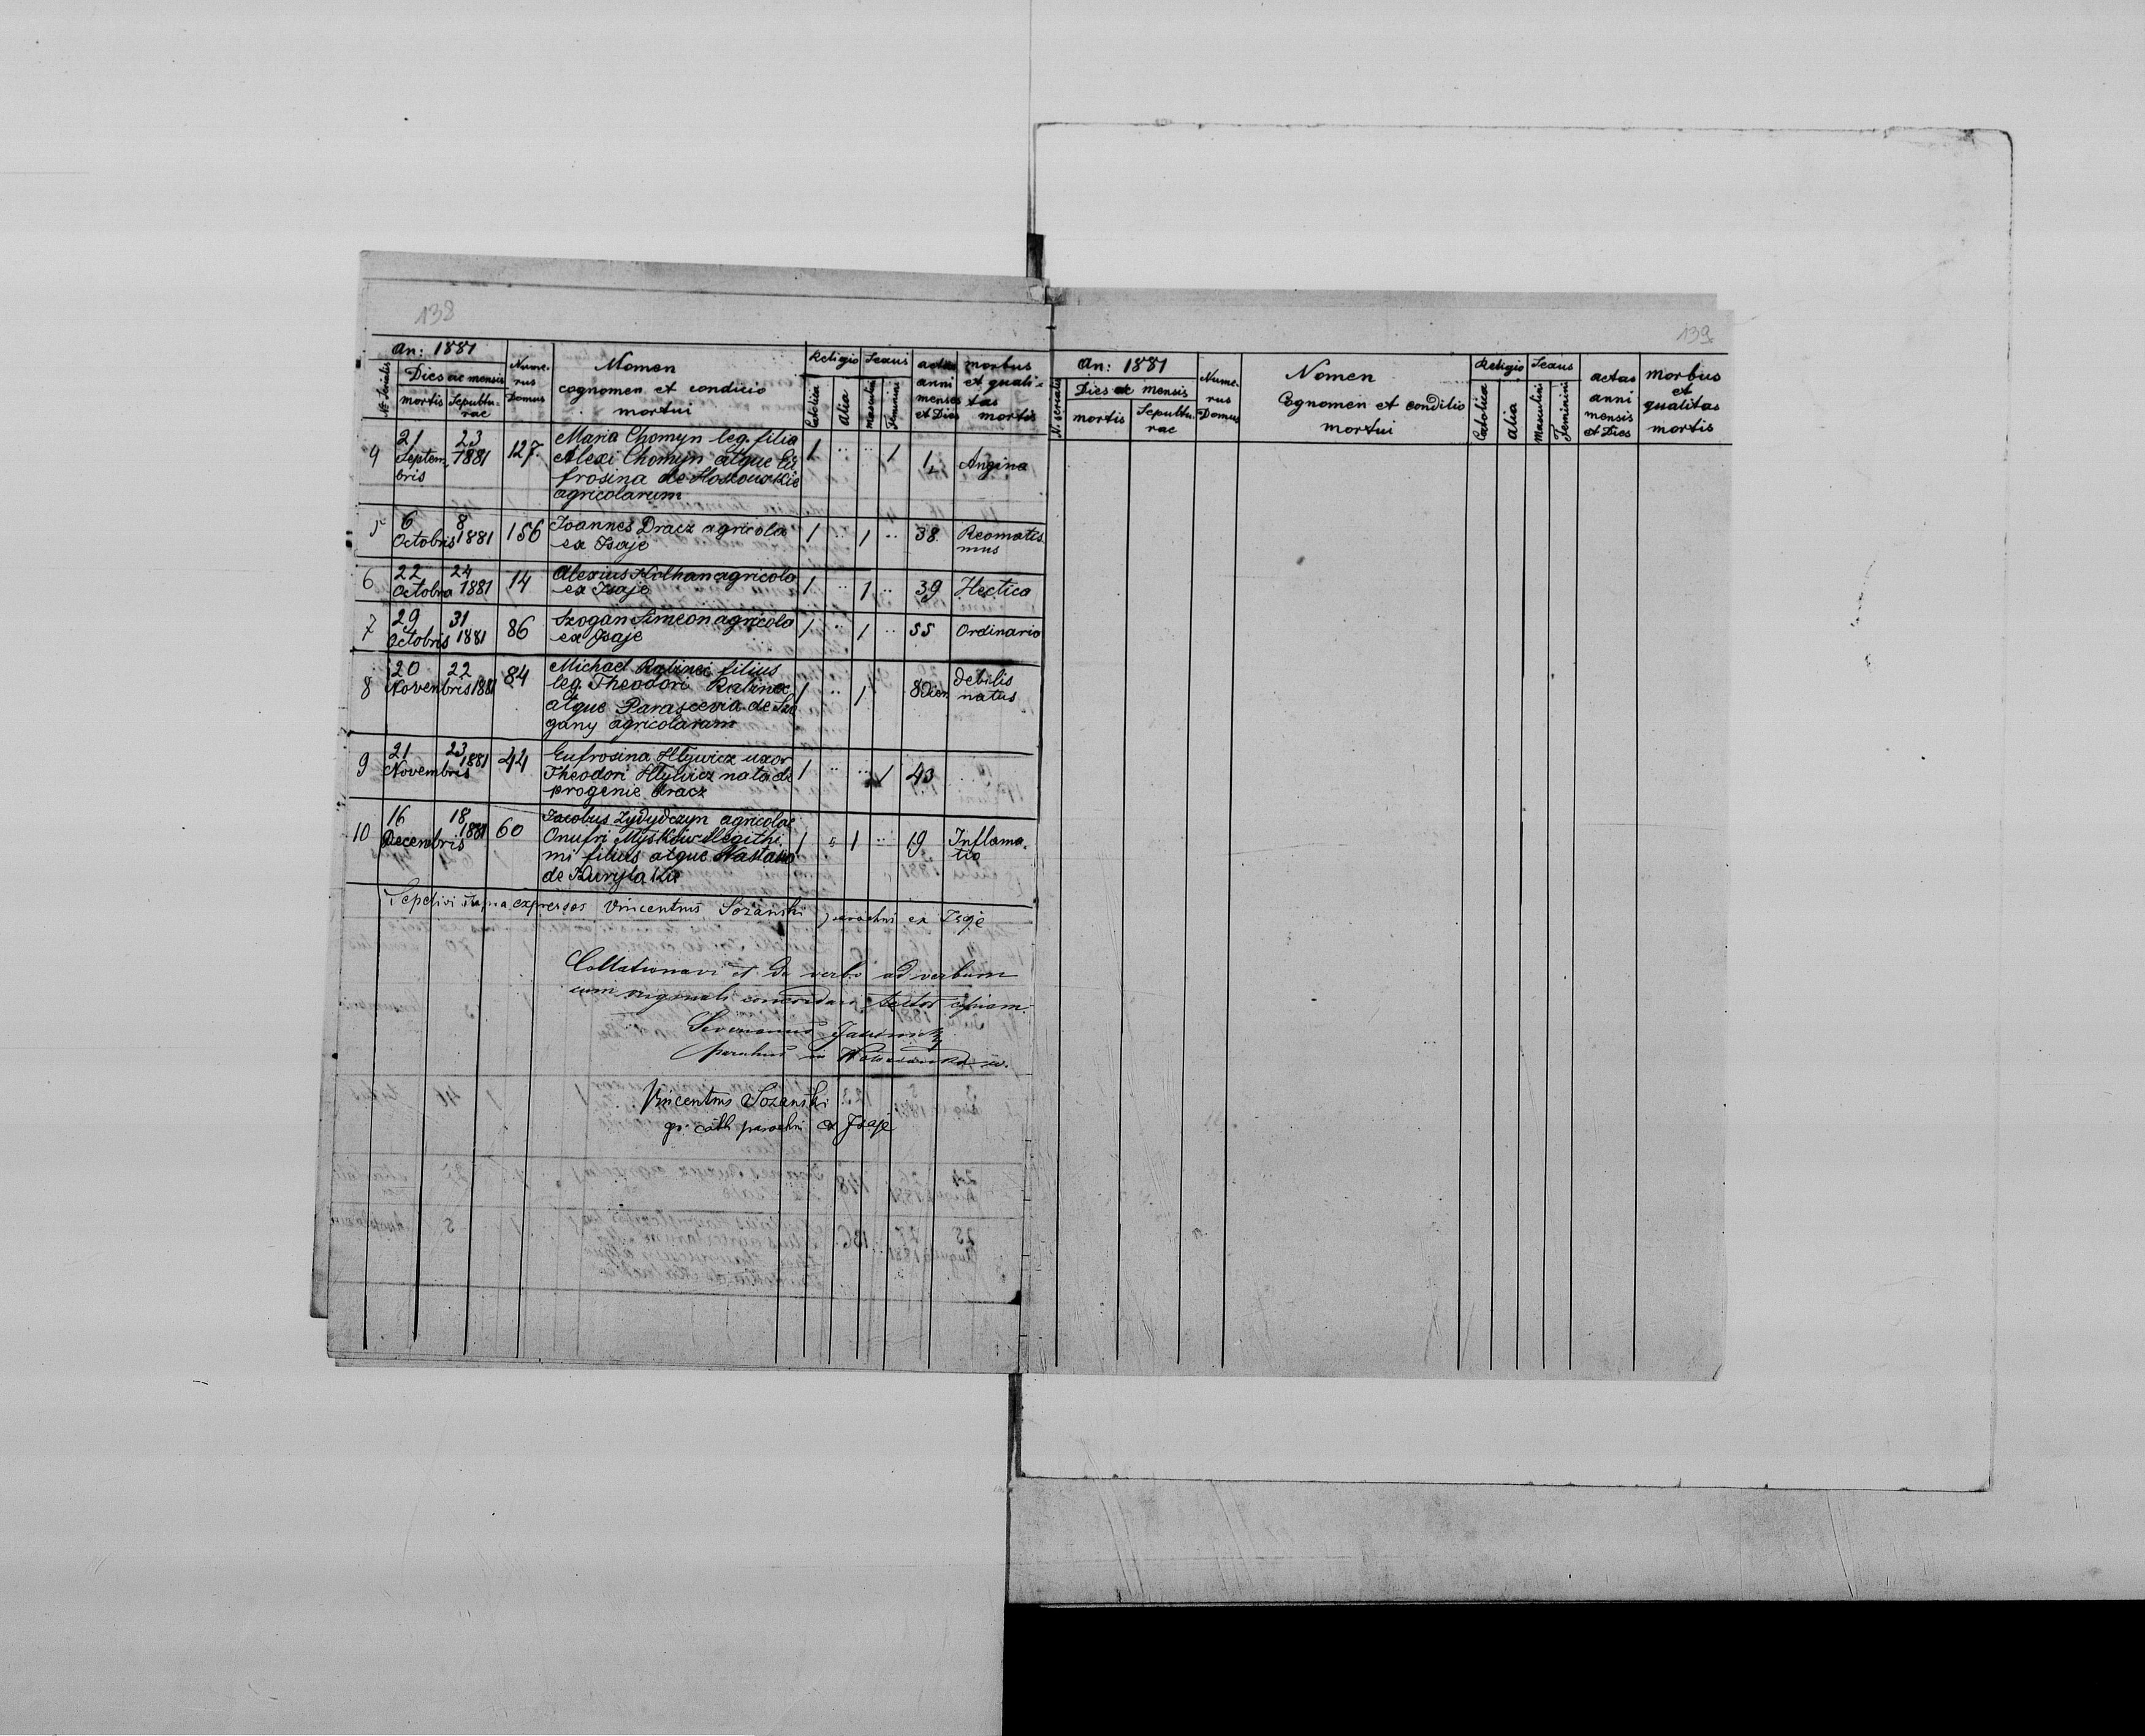 138
An: 1881
Nr. Serialis
Dies ac mensis
mortis Sepultu-
rae
Nume-
rus
Domus
Nomen
cognomen et condicio
mortui
Religio Sexus
Catolica Alia Masculini Feminini
aetas
anni
menses
et Dies
morbus
et quali-
tas
mortis
4 21 Septem bris 23 1881 127. Maria Chomyn leg. filia 1 1 4 Angina
Alexi Chomyn atque Eu
frosina de
agricolarum
5 6 Octobris 8 1881 156 Joannes Dracz agricola 1 1 38 Reomatis
ex Isaje mus
6 22 24 1881 14 Alexius Kolhan agricola 1 1 39 Hectica
ex Isaje
7 29 Octobris 31 1881 86 Szogan Simeon agricola 1 1 55 Ordinario
ex Isaje
8 20 Novembris 22 1881 84 Michael Rabinec filius 1 1 8 Dier debilis
leg. Theodori Rabinec natus
atque Parascevia de Szo
gany agricolarum
9 21 Novembris 23 1881 44 Eufrosina Hlywicz uxor 1 1 43
Theodori Hlywicz nata de
progenie Dracz
10 16 Decembris 18 1881 60 Jacobus Zydydczyn agricolae 1 1 19 Inflama.
Onufri Myskow illegithi tio
mi filius atque Nastasia
de
Sepelivi expressos Vincentius Sozański parochus ex Isaje
Collationavi et de verbo ad verbum
cum originali
Severianus
parochus in
Vincentius Sozański
gr. cath parochus ex Isaje
139
An: 1881
N. serialis
Dies ac mensis
mortis Sepultu-
rae
Nume-
rus
Domus
Nomen
Cognomen et conditio
mortui
Religio Sexus
Catolica Alia Masculini Feminini
aetas
anni
mensis
et Dies
morbus
et
qualitas
mortis